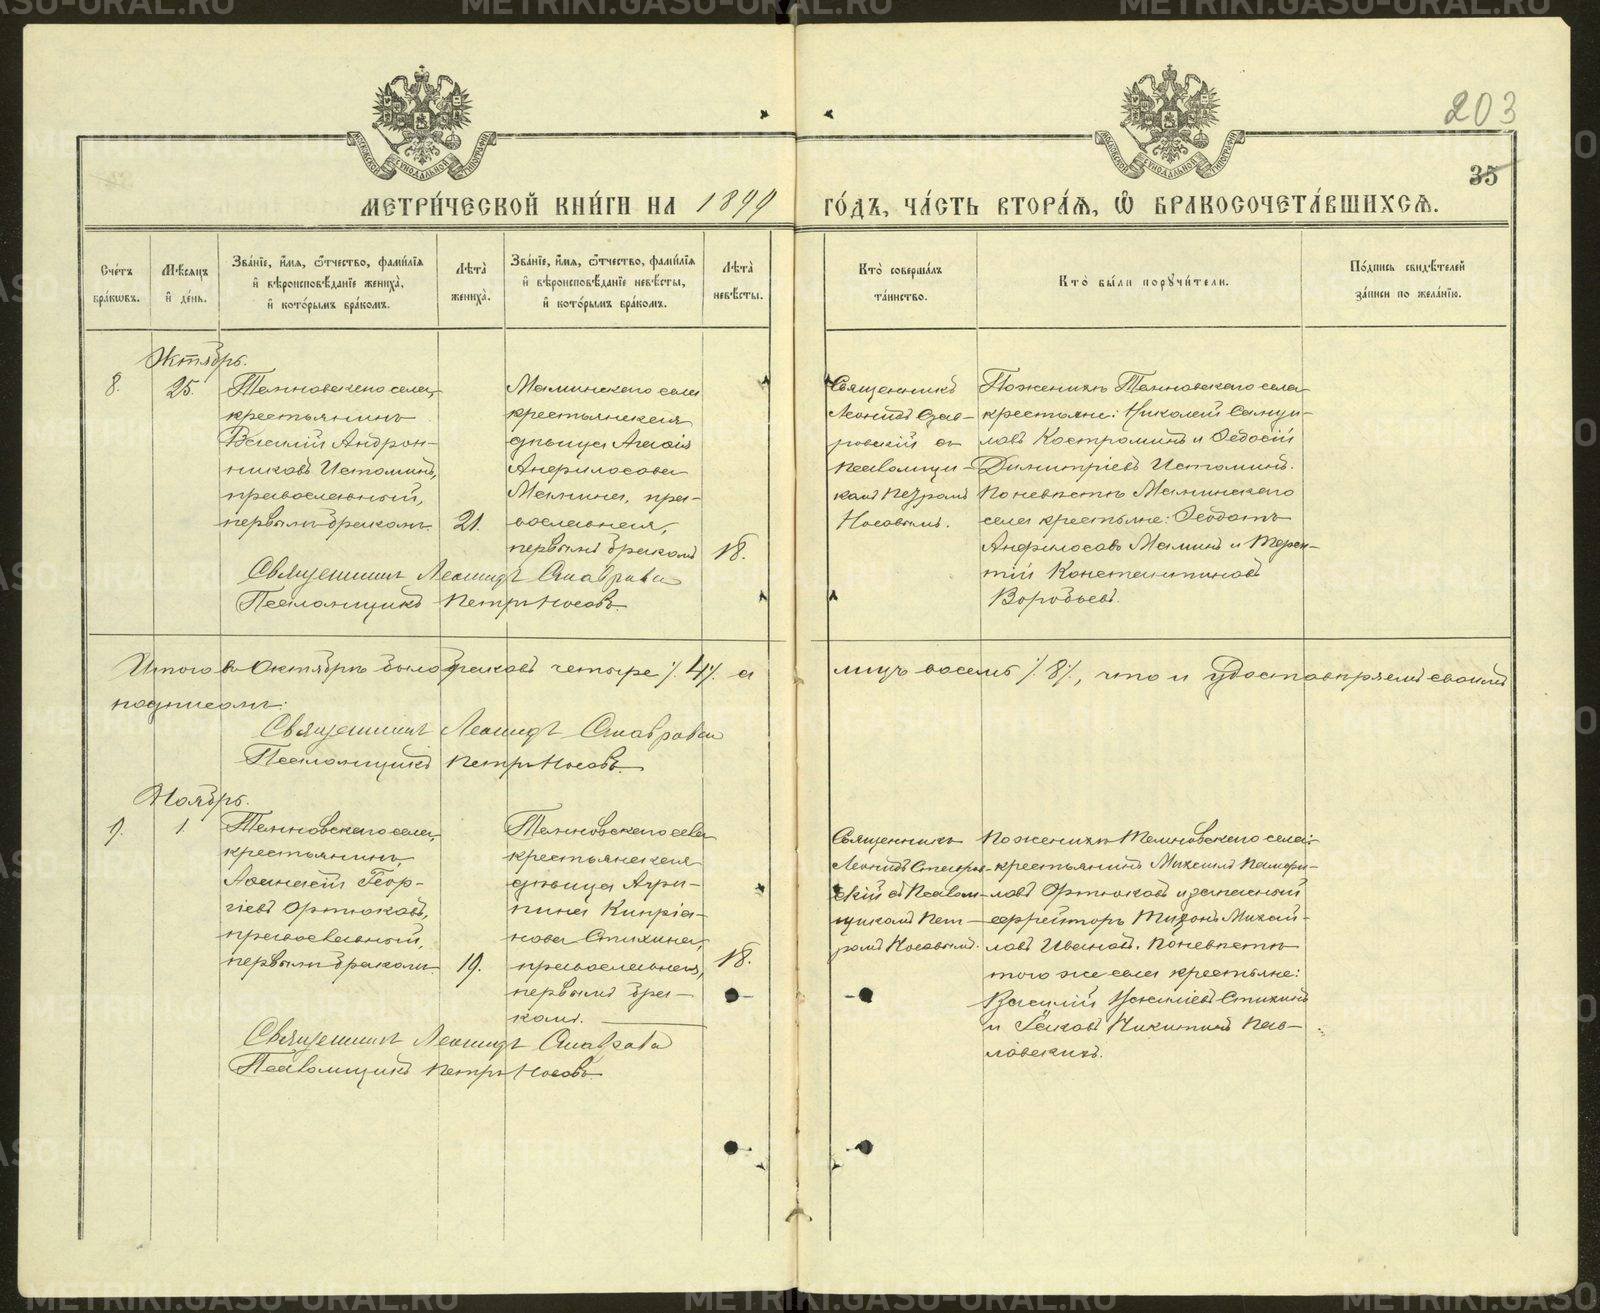 203
35
МОСКОВСКОЙ СѴНОДАЛЬНОЙ ТИПОГРАФІИ
МОСКОВСКОЙ СѴНОДАЛЬНОЙ ТИПОГРАФІИ
МЕТРИ́ЧЕСКОЙ КНИ́ГИ НА 1899 ГО́ДЪ, ЧА́СТЬ ВТОРА́Ѧ, Ѽ БРАКОСОЧЕТА́ВШИХСѦ.
Сче́тъ бра́кѡвъ.
Мѣ́сяцъ и̂ де́нь.
Зва́нїе, и́мя, ѻ҆́тчество, фами́лїя и̂ вѣроисповѣ́данїе жениха̀, и̂ кото́рымъ бра́комъ.
Лѣ́та жениха̀.
Зва́нїе, и́мя, ѻ҆́тчество, фами́лїя и̂ вѣроисповѣ́данїе невѣ́сты, и̂ кото́рымъ бра́комъ.
Лѣ́та невѣ́сты.
Кто̀ соверша́лъ та́инство.
Кто̀ бы́ли порꙋчи́тели.
По́дпись свидѣ́телей за́писи по жела́нїю.
Октябрь.
8.
25.
Темновскаго села,
крестьянинъ
Василій Андрон-
никовъ Истоминъ,
православный,
первымъ бракомъ.
21.
Маминскаго села
крестьянская
дѣвица
Анфилофова
Мамина, пра-
вославная,
первымъ бракомъ
18.
Священникъ
Леонидъ Став-
ровскій съ
псаломщи-
комъ Петромъ
Носовымъ.
По женихѣ Темновскаго села
крестьяне: Николай
Костроминъ и Ѳедосій
Димитріевъ Истоминъ.
По невѣстѣ Маминскаго
села крестьяне: Ѳеодотъ
Анфилофовъ Маминъ и Терен-
тій Константиновъ
Воробьевъ.
Священникъ Леонидъ Ставровскій
Псаломщикъ Петръ Носовъ.
Итого въ Октябрѣ было браковъ четыре /.4./. а лицъ восемь /.8./., что и удостовѣряемъ своимъ
подписомъ:
Священникъ Леонидъ Ставровскій
Псаломщикъ Петръ Носовъ.
Ноябрь.
9.
1.
Темновскаго села,
крестьянинъ,
Аѳанасій Геор-
гіевъ Ортюковъ,
православный,
первымъ бракомъ
19.
Темновскаго села
крестьянская
дѣвица Агри-
пина Кипріа-
нова Стихина,
православная,
первымъ бра-
комъ.
18.
Священникъ
Леонидъ Ставров-
скій съ Псалом-
щикомъ Пет-
ромъ Носовымъ.
По женихѣ Темновскаго села:
крестьянинъ Михаилъ Памфи-
ловъ Ортюковъ и запасный
ефрейторъ Тихонъ Михай-
ловъ Ивановъ. По невѣстѣ
того же села крестьяне:
Василій Стихинъ
и Іаковъ Никитинъ Пав-
ловскихъ.
Священникъ Леонидъ Ставровскій
Псаломщикъ Петръ Носовъ.
METRIKI.GASO-URAL.RU